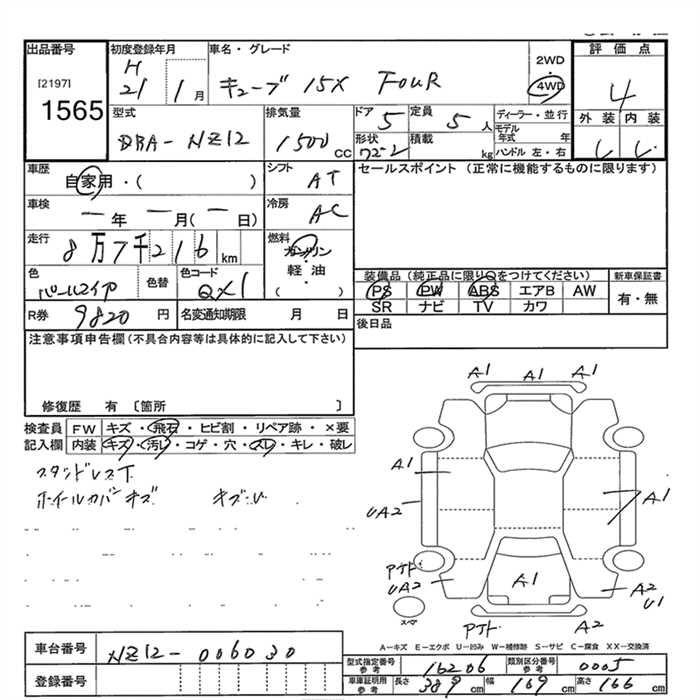 出品番号 初度登録年月 車名・グレード 評価点
[2197] 1565
H 21 1月 キューブ 15X FOUR
2WD・4WD 4
型式 DBA-NZ12 排気量 1500 CC
ドア 5 定員 5人 ディーラー・並行 外装 内装
形状 積載 kg モデル年式 年
ハンドル 左・右
車歴 自家用・( ) シフト AT セールスポイント (正常に機能するものに限ります)
車検 年 月( 日) 冷房 AC
走行 8万7千216km 燃料 ガソリン・軽油・( )
色 パールホワイト 色替 色コード QX1
装備品(純正品に限り○をつけてください) 新車保証書
PS PW ABS エアB AW 有・無
SR ナビ TV カワ
R券 9820円 名変通知期限 月 日 後日品
注意事項申告欄(不具合内容等は具体的に記入して下さい)
修復歴 有 〔箇所 〕
検査員記入欄 FW キズ・飛石・ヒビ割・リペア跡・×要
内装 キズ・汚レ・コゲ・穴・スレ・キレ・破レ
ホイールカバーキズ
A1 A1 A1
A1 A1
UA2
A1
UA2 A2 U1
A2
スペア
A-キズ E-エクボ U-凹み W-補修跡 S-サビ C-腐食 XX-交換済
車台番号 NZ12-006030
登録番号
型式指定番号 参考 16206 類別区分番号 参考 0005
車庫証明用 参考 長さ 389cm 幅 169cm 高さ 166cm